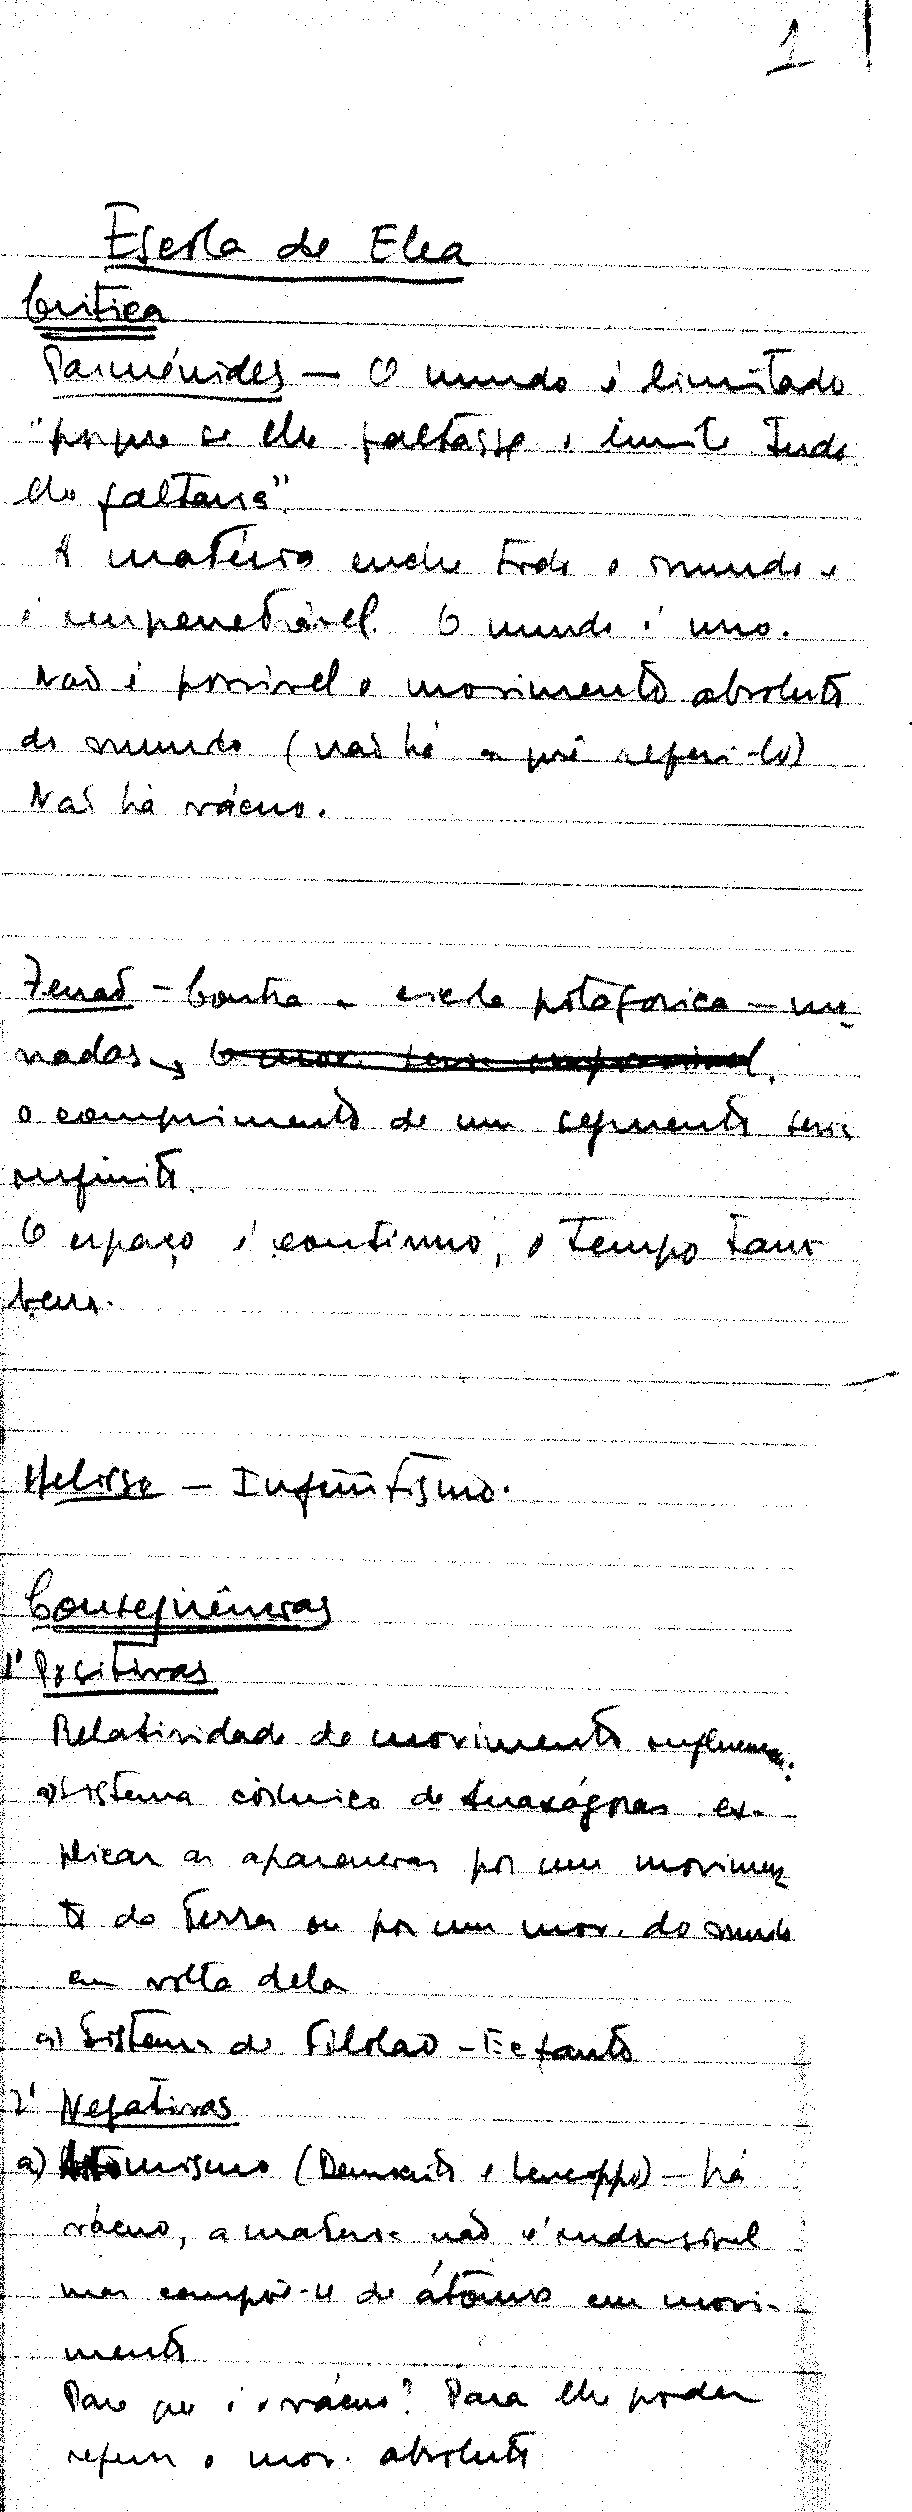 1
Escola de Elea
Crítica
Parménides — O mundo é limitado
"porque se lhe faltasse o limite tudo
lhe faltaria".
A matéria enche todo o mundo e
é impenetrável. O mundo é uno.
Não é possível o movimento absoluto
do mundo (não há a quê referi-lo)
Não há vácuo.
Zenão — Contra a escola pitagorica — mó-
nadas → O mov. seria impossivel.
o comprimento de um segmento seria
infinito.
O espaço é contínuo, o tempo tam-
bem.
Melisso — Infinitismo.
Conseqüências
1º Positivas
Relatividade do movimento influencia:
a) sistema cósmico de Anaxágoras. ex-
plicar as aparencias por um movimen-
to da terra ou por um mov. do mundo
em volta dela
a) Sistema de Filolao - Ecfanto
2º Negativas
a) Atomismo (Democrito e Leucippo) — há
vácuo, a materia não é indivisivel
mas compõe-se de átomos em movi-
mento
Para que é o vácuo? Para lhe poder
referir o mov. absoluto